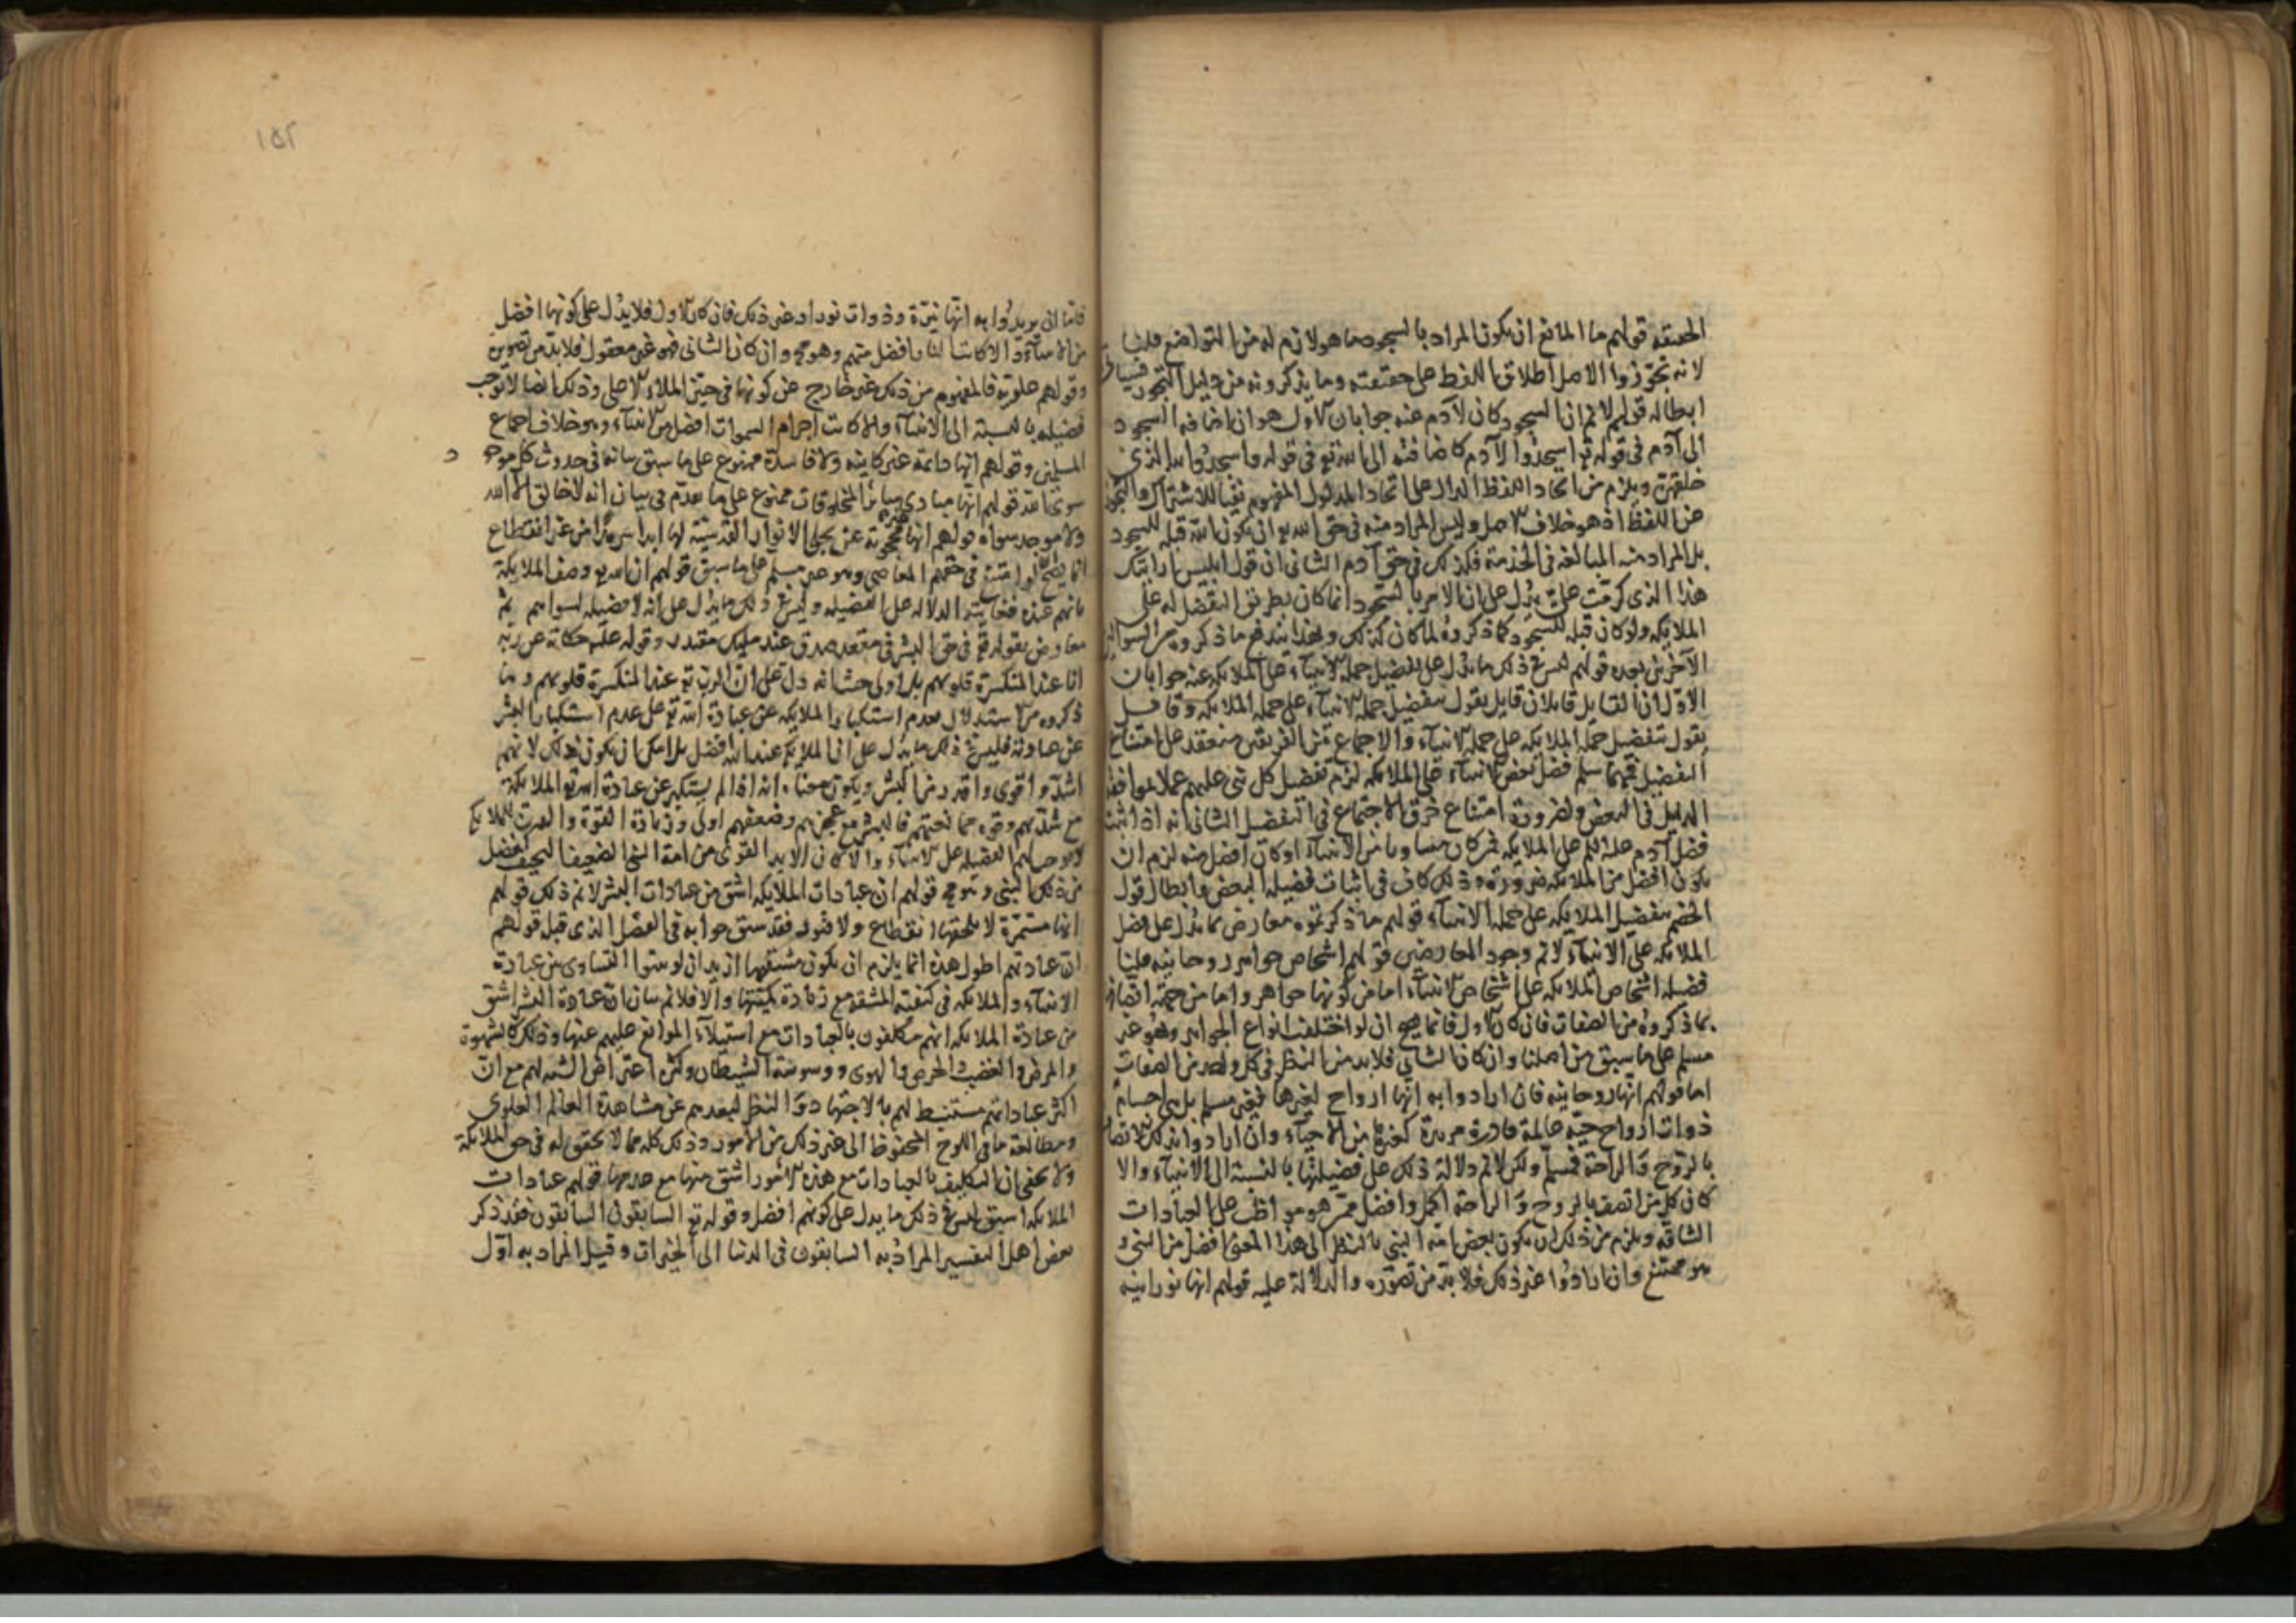 الحقيقه قولهم ما المانع ان يكون المراد بالسجود ما هو لازم له من التواضع قلنا
لانه تجوز والاصل اطلاق اللفظ على حقيقته وما يذكرونه من دليل التجوز فسياتى
ابطاله قولهم لانم ان السجود كان لآدم عنه جوابان الاول هو ان اضافه السجود
الى آدم فى قوله تع اسجدوا لآدم كاضافته الى الله تع فى قوله واسجدوا لله الذى
خلقهن ويلزم من اتحاد اللفظ الدال على اتحاد المدلول المفهوم نفيا للاشتراك والتجوز
عن اللفظ اذ هو خلاف الاصل وليس المراد منه فى حق الله تع ان يكون الله قبله للسجود
بل المراد منه المبالغه فى الخدمة فكذلك فى حق آدم الثانى ان قول ابليس ارايتك
هذا الذى كرمت على يدل على ان الامر بالسجود انما كان بطريق التفضيل له على
الملايكه ولو كان قبله للسجود كما ذكروه لما كان كذلك وبهذا يندفع ما ذكروه من السوالين
الآخرين بعده قولهم ليس فى ذلك ما يدل على تفضيل جمله الانبياء على الملايكه عنه جوابان
الاول ان القايل قايلان قايل يقول بتفضيل جمله الانبياء على جمله الملايكه وقايل
يقول بتفضيل جمله الملايكه على جمله الانبياء والاجماع من الفريقين منعقد على امتناع
التفصيل فمهما سلم فضل بعض الانبياء على الملايكه لزم تفضيل كل نبى عليهم عملا بموافقه
الدليل فى البعض ولضرورة امتناع خرق الاجماع فى التفصيل الثانى انه اذا ثبت
فضل آدم عليه السلم على الملايكه فمن كان مساويا من الانبياء او كان افضل منه لزم ان
يكون افضل من الملايكه ضرورة وذلك كاف فى اثبات فضيله البعض وابطال قول
الخصم بتفضيل الملايكه على جمله الانبياء قولهم ما ذكرتموه معارض بما يدل على فضل
الملايكه على الانبياء لانم وجود المعارض قولهم اشخاص جواهر روحانيه قلنا
فضيله اشخاص الملايكه على اشخاص الانبياء اما من كونها جواهر واما من جهة اتصافها
بما ذكروه من الصفات فان كان الاول فانما يصح ان لو اختلفت انواع الجواهر وهو غير
مسلم على ما سبق من اصلنا وان كان الثانى فلا بد من النظر فى كل واحد من الصفات
اما قولهم انها روحانيه فان ارادوا به انها ارواح لغيرها فغير مسلم بل هى اجسام
ذوات ارواح حية عالمة قادرة مريدة كغيرها من الاحياء وان ارادوا بذلك الاتصاف
بالروح والراحة فمسلم ولكن لانم دلالة ذلك على فضيلتها بالنسبة الى الانبياء والا
كان كل من اتصف بالروح والراحة اكمل وافضل ممن هو مواظب على العبادات
الشاقه ويلزم من ذلك ان يكون بعض امة النبى بالنظر الى هذا المعنى افضل من النبى و
هو ممتنع وان ارادوا غير ذلك فلا بد من تصوره والدلالة عليه قولهم انها نورانيه
١٥٢
فاما ان يريدوا به انها نيرة وذوات نور او غير ذلك فان كان الاول فلا يدل على كونها افضل
من الانبياء والا كانت النار افضل منهم وهو مح وان كان الثانى فهو غير معقول فلا بد من تصويره
وقولهم علوية فالمفهوم من ذلك غير خارج عن كونها فى حيز الملاء الاعلى وذلك ايضا لا يوجب
فضيله بالنسبة الى الانبياء والا كانت اجرام السموات افضل من الانبياء وهو خلاف اجماع
المسلمين وقولهم انها دائمة غير كاينه ولا فاسدة ممنوع على ما سبق بيانه فى حدوث كل موجود
سوى الله قولهم انها مبادى سائر المخلوقات ممنوع على ما تقدم فى بيان انه لا خالق الا الله
ولا موجد سواه قولهم انها غير محجوبة عن تجلى الانوار القدسية لها ابدا سرمدا من غير انقطاع
انما يصح ان لو امتنع فى حقهم المعاصى وهو غير مسلم على ما سبق قولهم ان الله تع وصف الملايكة
بانهم عنده فغايته الدلاله على الفضيله وليس فى ذلك ما يدل على انه لا فضيله لسواهم ثم
معارض بقوله تع فى حق البشر فى مقعد صدق عند مليك مقتدر وقوله عليه حكاية عن ربه
انا عند المنكسرة قلوبهم بل اولى حيث انه دل على ان الرب تع عند المنكسرة قلوبهم وما
ذكروه من الاستدلال بعدم استكبار الملايكه عن عبادة الله تع على عدم استكبار البشر
عن عبادته فليس فى ذلك ما يدل على ان الملايكه عند الله افضل بل امكن ان يكون ذلك لانهم
اشد واقوى واقدر من البشر ويكون معناه انه اذا لم يستكبر عن عبادة الله تع الملايكة
مع شدتهم وقوه فالبشر مع عجزهم وضعفهم اولى وزيادة القوة والقدرة للملايكه
لا توجب لهم الفضيله على الانبياء والا كان الايد القوى من امة النبى الضعيف النحيف افضل
من ذلك النبى وهو مح قولهم ان عبادات الملايكه اشق من عبادات البشر لانم ذلك قولهم
انها مستمرة لا يلحقها انقطاع ولا فتور فقد سبق جوابه فى الفصل الذى قبله قولهم
ان عبادتهم اطول هذه انما يلزم ان يكون مشقتها ازيد ان لو استوا التساوى بين عبادة
الانبياء والملايكه فى كيفية المشقه مع زيادة كميتها والا فلانم بيان ان عبادة البشر اشق
من عبادة الملايكه انهم مكلفون بالعبادات مع استيلاء الموانع عليهم عنها وذلك كالشهوة
والمرض والغضب والحرص والهوى ووسوسة الشيطان وكثره اعتراض الشبه لهم مع ان
اكثر عباداتهم مستنبط لهم بالاجتهاد والنظر لبعدهم عن مشاهدة العالم العلوى
ومطالعة ما فى اللوح المحفوظ الى غير ذلك من الامور وذلك كله مما لا تحقق له فى حق الملايكة
ولا يخفى ان التكليف بالعبادات مع هذه الامور اشق منها مع عدمها قولهم عبادات
الملايكه اسبق ليس فى ذلك ما يدل على كونهم افضل وقوله تع السابقون السابقون فقد ذكر
بعض اهل التفسير المراد به السابقون فى الدنيا الى الخيرات وقيل المراد به اول